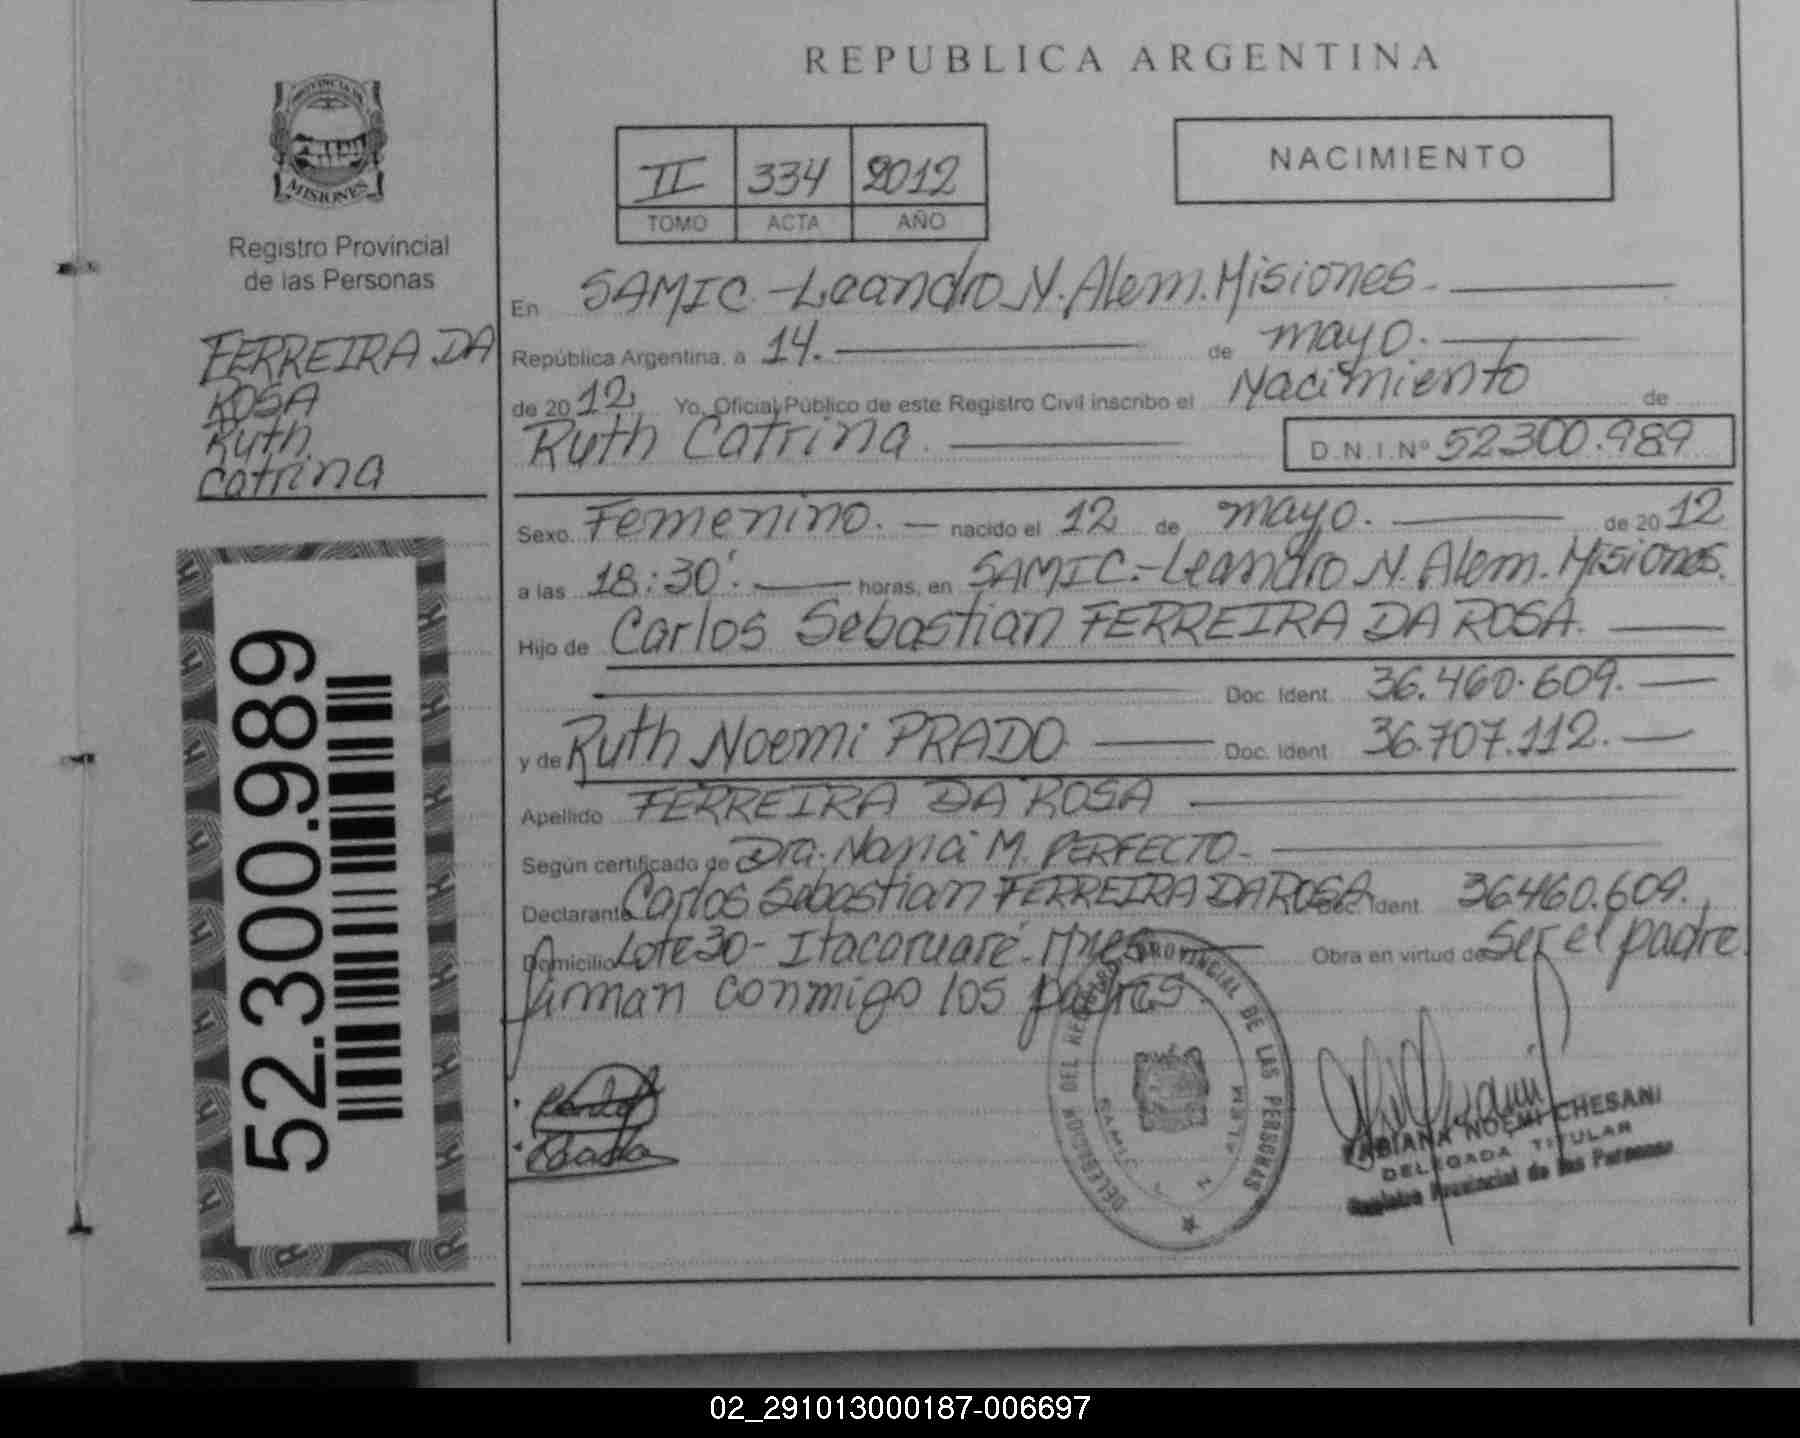 PROVINCIA DE
MISIONES
Registro Provincial
de las Personas
FERREIRA DA
ROSA
Ruth
Catrina
52.300.989
REPUBLICA ARGENTINA
II 334 2012
TOMO ACTA AÑO
NACIMIENTO
En SAMIC - Leandro N. Alem. Misiones.
República Argentina, a 14. de mayo.
de 2012 Yo, Oficial Público de este Registro Civil inscribo el Nacimiento de
Ruth Catrina. D.N.I.Nº 52300.989
Sexo. Femenino. nacido el 12 de mayo. de 2012
a las 18:30'. horas, en SAMIC.- Leandro N. Alem. Misiones.
Hijo de Carlos Sebastian FERREIRA DA ROSA.
Doc. Ident. 36.460.609.
y de Ruth Noemi PRADO Doc. Ident. 36.707.112.
Apellido FERREIRA DA ROSA
Según certificado de Dra. Nanci M. PERFECTO-
Declarante Carlos Sebastian FERREIRA DA ROSA Doc. Ident. 36460.609.
Domicilio Lote 30 - Itacaruaré. Mnes Obra en virtud de Ser el padre.
firman conmigo los padres.
DELEGACION DEL REGISTRO PROVINCIAL DE LAS PERSONAS
FABIANA NOEMI CHESANI
DELEGADA TITULAR
Registro Provincial de las Personas
02_291013000187-006697